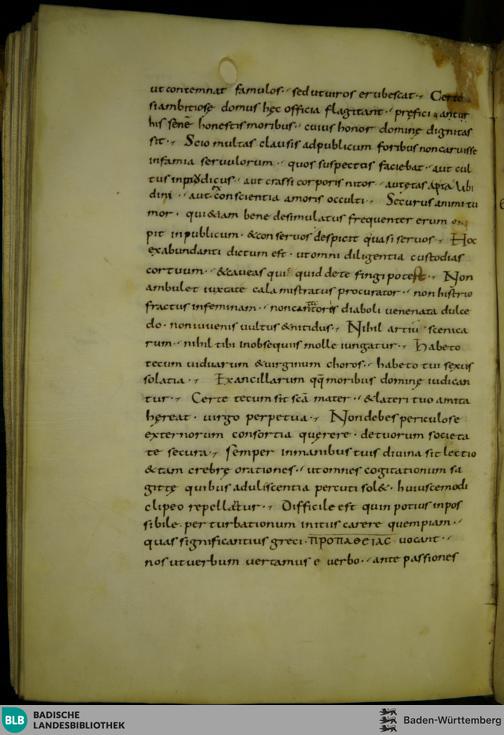 ut contemnat famulos· sed ut uiros erubescat· Certe
si ambitiose domus hęc officia flagitant· pręfici antur
his senē honestis moribus· cuius honor dominę dignitas
sit· Scio multas clausis ad publicum foribus non caruisse
infamia seruulorum· quos suspectos faciebat· aut cul
tus inmodicus· aut crassi corporis nitor· aut ętas apta libi
dini· aut ex conscientia amoris occulti· Securus animi tu
mor· qui etiam bene desimulatus frequenter erum
pit inpublicum· & conseruos despicit quasi seruos· Hoc
ex abundanti dictum est· ut omni diligentia custodias
cor tuum· & caueas quic quid de te fingi potest· Non
ambulet iuxta te calamistratus procurator· non histrio
fractus in feminam· non cantoris diaboli uenenata dulce
do· non iuuenis uultus & nitidus· Nihil artiū scenica
rum· nihil tibi in obsequiis molle iungatur· Habeto
tecum uiduarum & uirginum choros· habeto tui sexus
solatia· Ex ancillarum qq moribus dominę iudican
tur· Certe tecum sit scā mater· & lateri tuo amita
hęreat· uirgo perpetua· Non debes periculose
externorum consortia quęrere· de tuorum societa
te secura· Semper in manibus tuis diuina sit lectio
& tam crebrę orationes· ut omnes cogitationum sa
gittę quibus adulescentia percuti sol&· huiuscemodi
clipeo repellātur· Difficile est quin potius inpos
sibile· perturbationum initiis carere quempiam·
quas significantius greci· ΠΡΟΠΑΘΕΙΑC uocant·
nos ut uerbum uertamus e uerbo· ante passiones
BLB BADISCHE
LANDESBIBLIOTHEK
Baden-Württemberg